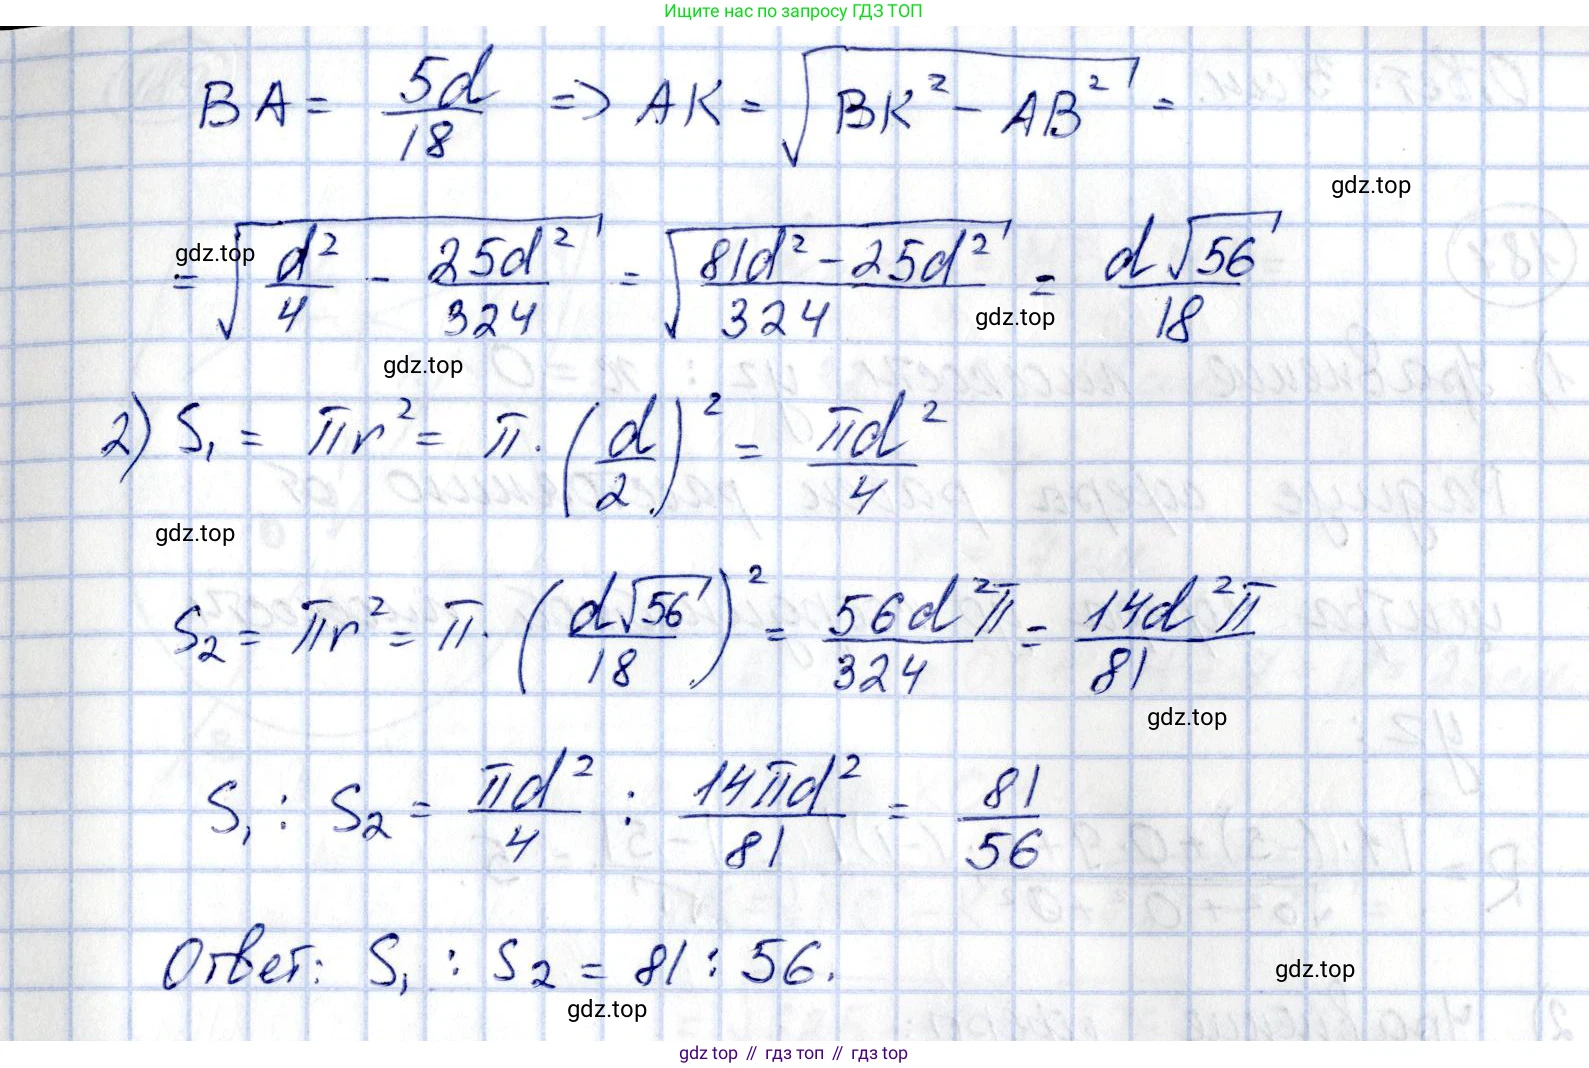 Ищите нас по запросу ГДЗ ТОП
BA = 5d/18 => AK = √(BK² - AB²) =
gdz.top
= √(d²/4 - 25d²/324) = √((81d² - 25d²)/324) = d√56/18
gdz.top
gdz.top
gdz.top
2) S₁ = πr² = π · (d/2)² = πd²/4
gdz.top
S₂ = πr² = π · (d√56/18)² = 56d²π/324 = 14d²π/81
gdz.top
S₁ : S₂ = πd²/4 : 14πd²/81 = 81/56
Ответ: S₁ : S₂ = 81 : 56.
gdz.top
gdz.top
gdz top // гдз топ // гдз.top